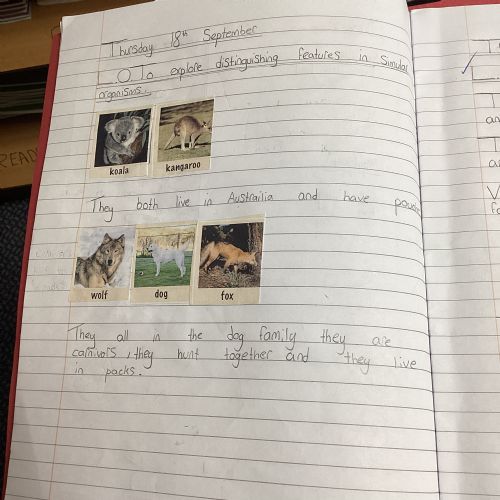 Thursday 18th September
L.O To explore distinguishing features in simular
organisms.
koala kangaroo
They both live in Austrailia and have
wolf dog fox
They all in the dog family they are
carnivors , they hunt together and they live
in packs.
READ